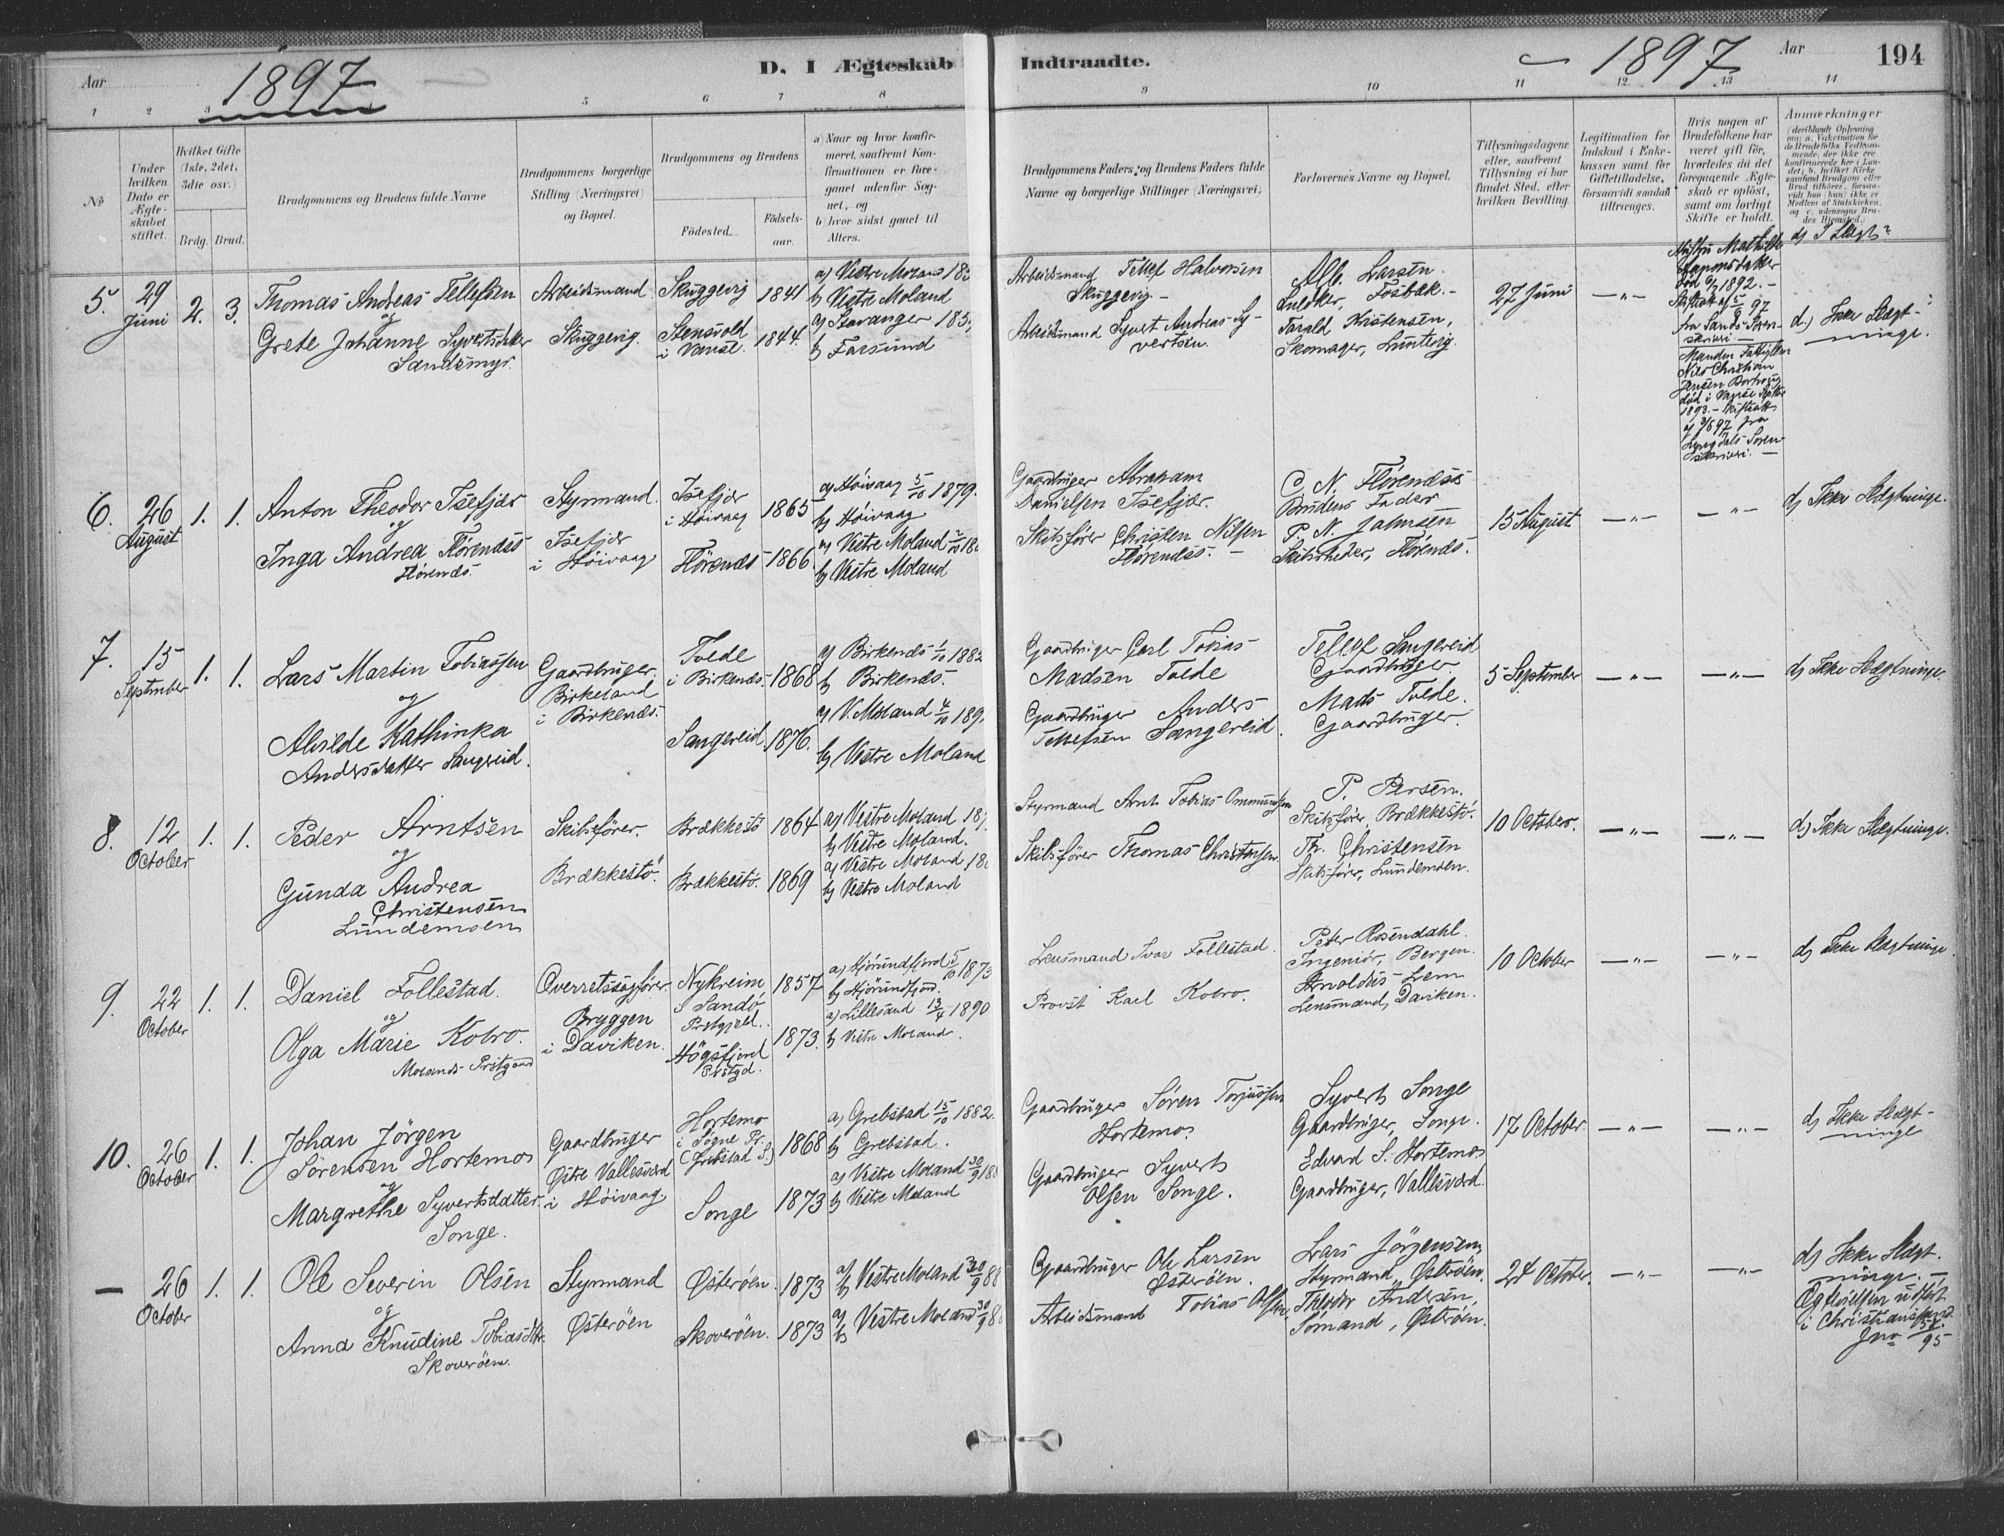 Aar 1897 D. I Ægteskab Indtraadte. 1897 Aar 194
1 2 3 5 6 7 8 9 10 11 12 13 14
No
Under hvilken Dato er Ægteskabet stiftet.
Hvilket Gifte (1ste, 2det, 3die osv.)
Brdg. Brud.
Brudgommens og Brudens fulde Navne
Brudgommens borgerlige Stilling (Næringsvei) og Bopæl.
Brudgommens og Brudens
Födested. Födselsaar.
a) Naar og hvor konfirmeret, saafremt Konfirmationen er foregaaet udenfor Sognet, og
b) hvor sidst gaaet til Alters.
Brudgommens Faders og Brudens Faders fulde Navne og borgerlige Stillinger (Næringsvei)
Forlovernes Navne og Bopæl.
Tillysningsdagene eller, saafremt Tillysning ei har fundet Sted, efter hvilken Bevilling.
Legitimation for Indskud i Enkekassen samt for Giftetilladelse, forsaavidt saadan tiltrænges.
Hvis nogen af Brudefolkene har været gift för, hvorledes da det foregaaende Ægteskab er oplöst, samt om lovligt Skifte er holdt.
Anmærkninger
d) I Slægt?
5. 29 Juni 2. 3.
Thomas Andreas Tellefsen
og
Grete Johanne Syvertsdatter
Sandsmyr.
Arbeidsmand
Skuggevig.
Skuggevig 1841
Stensvold i Vanse. 1844.
a) Vestre Moland
b) Vestre Moland
a) Stavanger
b) Farsund
Arbeidsmand Tellef Halvorsen
Skuggevig
Arbeidsmand Syvert Andreas Syvertsen.
Alb. Larsen
Snedker, Fosbæk.
Tarald Kristensen,
Skomager, Luntvig.
27 Juni
— " —
Hustru Mathilde
død 1892.
Skifteat. 97
fra Sands Sorenskriveri.
Manden
Nils Christian
Jensen
død i Vanse
1893. - Skifteatt.
97 fra
Lyngdals Sorenskriveri. —
d.) Ikke Slægtninge.
6. 26 August 1. 1.
Anton Theodor Isefjær
og
Inga Andrea Flørendss
Flørends.
Styrmand.
Isefjær
i Høivaag
Isefjær
i Høivaag 1865
Flørends 1866
a) Høivaag 5/10 1879.
b) Høivaag
a) Vestre Moland
b) Vestre Moland
Gaardbruger Abraham
Danielsen Isefjær.
Skibsfører Christen Nilsen
Flørendss. —
C. N. Flørendss
Brudens Fader
P. N. Salmsen
Skibsrheder, Flørends.
15 August
— " — — " —
d) Ikke Slægtninge.
7. 15 September 1. 1.
Lars Martin Tobiassen
og
Alvilde Kathinka
Andersdatter Sangereid.
Gaardbruger.
Birkeland
i Birkenæs.
Tvede
i Birkenæs. 1868
Sangereid 1876.
a) Birkenæs 1/10
b) Birkenæs.
a) V. Moland 4/10
b) Vestre Moland
Gaardbruger Carl Tobias
Madsen Tvede
Gaardbruger Anders
Tellefsen Sangereid.
Tellef Sangereid
Gaardbruger
Mads Tvede.
Gaardbruger.
5 September
— " — — " —
d) Ikke Slægtninge.
8. 12 October 1. 1.
Peder Arntsen
og
Gunda Andrea
Christensen
Lundemoen
Skibsfører.
Brækkestø.
Brækkestø 1864
Brækkestø. 1869
a) Vestre Moland
b) Vestre Moland.
a) Vestre Moland
b) Vestre Moland
Styrmand Arnt Tobias Ommundsen
Skibsfører Thomas Christensen.
P. Persen.
Skibsfører, Brækkestø.
Th. Christensen
Skibsfører, Lundemoen.
10 October.
— " — — " —
d) Ikke Slægtninge.
9. 22 October 1. 1.
Daniel Follestad.
og
Olga Marie Kobro.
Molands Præstgaard
Overretssagfører
Bryggen
i Daviken.
Nykreim
i Sandø
Prstgjeld. 1857
Høgsfjord
Prstgd. 1873.
a) Hjørundfjord 5/10 1873
b) Hjørundfjord.
a) Lillesand 13/4 1890
b) Vestre Moland.
Lensmand Ivar Follestad.
Provst Karl Kobro.
Peter Rosendahl.
Ingeniør, Bergen.
Arnoldus Lem
Lensmand, Daviken.
10 October
— " — — " —
d) Ikke Slægtninge.
10. 26 October 1. 1.
Johan Jörgen
Sörensen Hortemo
og
Margrethe Syvertsdatter
Songe.
Gaardbruger
Østre Vallesværd
i Høivaag
Hortemo
i Søgne Pr.
(Grebstad S.) 1868
Songe 1873
a) Grebstad 15/10 1882.
b) Grebstad.
a) Vestre Moland 30/9
b) Vestre Moland.
Gaardbruger Søren Torjussen
Hortemo.
Gaardbruger Syvert
Olsen Songe.
Syvert Songe
Gaardbruger, Songe.
Edvard S. Hortemo
Gaardbruger, Vallesværd.
17 October
— " — — " —
d) Ikke Slægtninge
— 26 October 1. 1.
Ole Severin Olsen
og
Anna Knudine Tobiasdtr.
Skoverøen.
Styrmand
Østerøen
Østerøen. 1873
Skoverøen. 1873
a) b) Vestre Moland 30/9 88
a) b) Vestre Moland 30/9
Gaardbruger Ole Larsen
Østerøen.
Arbeidsmand Tobias Olsen
Lars Jörgensen,
Styrmand, Østerøen.
Theodor Andersen,
Sömand, Østerøen.
24 October.
— " — — " —
d) Ikke Slægtninge. —
i Christianssand.
95